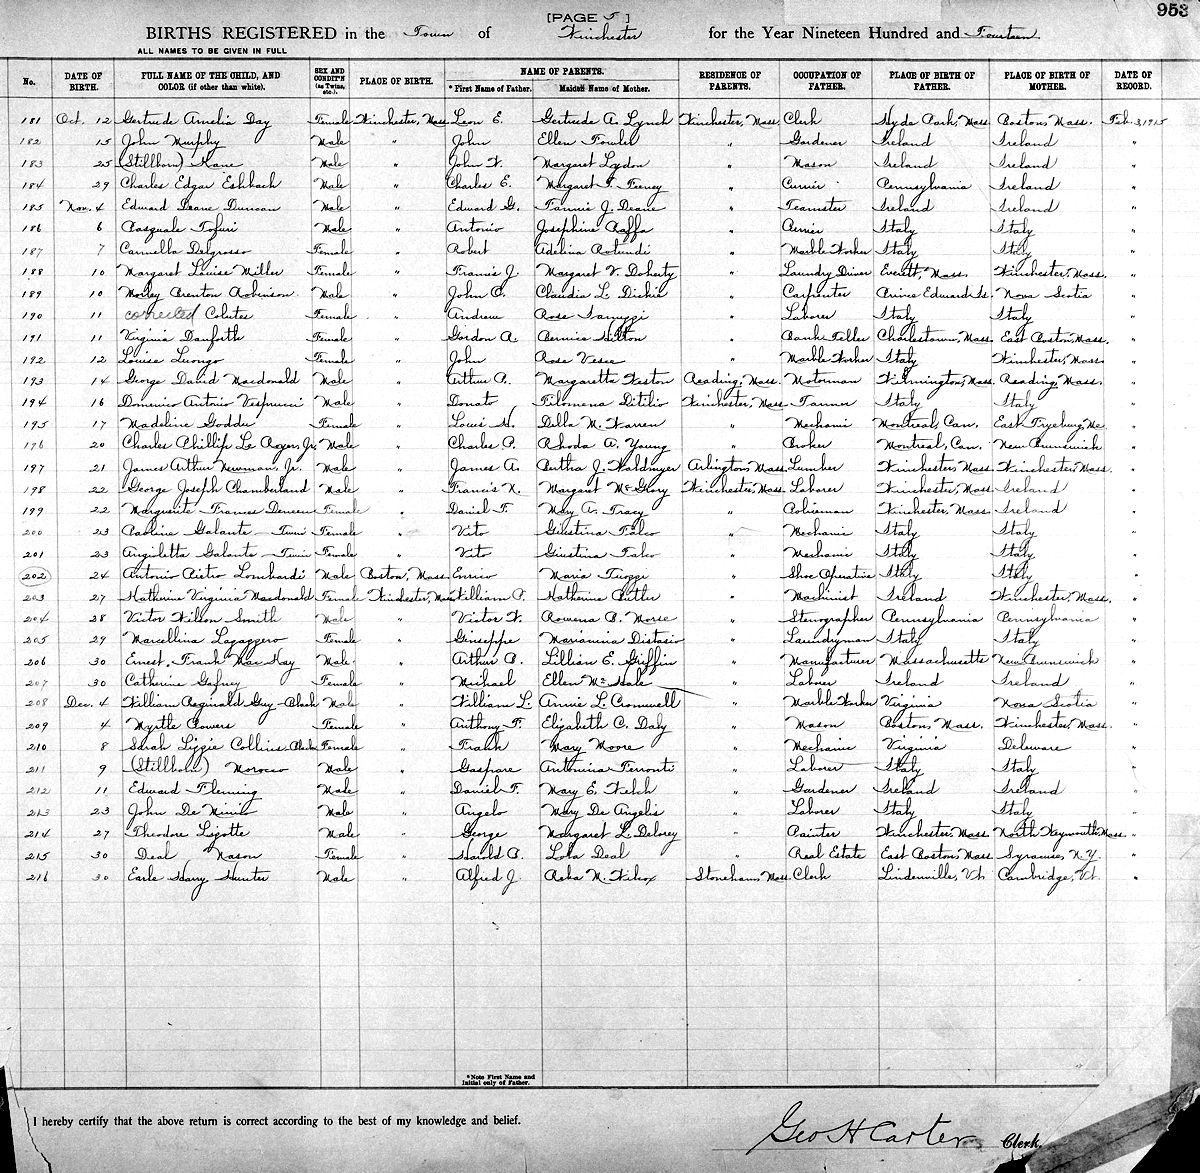 953
[PAGE 5]
BIRTHS REGISTERED in the Town of Winchester for the Year Nineteen Hundred and Fourteen.
ALL NAMES TO BE GIVEN IN FULL
No. DATE OF BIRTH. FULL NAME OF THE CHILD, AND COLOR (if other than white). SEX AND CONDIT'N (as Twins, etc.). PLACE OF BIRTH. NAME OF PARENTS. * First Name of Father. Maiden Name of Mother. RESIDENCE OF PARENTS. OCCUPATION OF FATHER. PLACE OF BIRTH OF FATHER. PLACE OF BIRTH OF MOTHER. DATE OF RECORD.
181 Oct. 12 Gertrude Amelia Day Female Winchester, Mass. Leon E. Gertrude A. Lynch Winchester, Mass. Clerk Hyde Park, Mass. Boston, Mass. Feb. 3, 1915
182 15 John Murphy Male " John Ellen Fowler " Gardener Ireland Ireland "
183 25 (Stillborn) Kane Male " John W. Margaret Lydon " Mason Ireland Ireland "
184 29 Charles Edgar Eshbach Male " Charles E. Margaret T. Feeney " Currier Pennsylvania Ireland "
185 Nov. 4 Edward Deane Duncan Male " Edward G. Fannie J. Deane " Teamster Ireland Ireland "
186 6 Pasquale Tofuri Male " Antonio Josephine Raffa " Italy Italy "
187 7 Carmella Delgrosso Female " Robert Adelina Rotundi " Marble Worker Italy Italy "
188 10 Margaret Louise Miller Female " Francis J. Margaret V. Doherty " Laundry Driver Everett, Mass. Winchester, Mass. "
189 10 Morley Brenton Robinson Male " John C. Claudia L. Dickie " Carpenter Prince Edward Is. Nova Scotia "
190 11 corrected Colutes Female " Andrew Rose " Laborer Italy Italy "
191 11 Virginia Danforth Female " Gordon A. Bernice Hilton " Bank Teller Charlestown, Mass. East Boston, Mass. "
192 12 Louise Luongo Female " John Rose Vesce " Marble Worker Italy Winchester, Mass. "
193 14 George David Macdonald Male " Arthur P. Margaretta Weston Reading, Mass. Motorman Wilmington, Mass. Reading, Mass. "
194 16 Domenico Antonio Vespucci Male " Donato Filomena Ditilio Winchester, Mass. Tanner Italy Italy "
195 17 Madeline Goddu Female " Louis H. Della M. Warren " Mechanic Montreal, Can. East Fryeburg, Me. "
196 20 Charles Phillip Le Royer, Jr. Male " Charles P. Rhoda A. Young " Broker Montreal, Can. New Brunswick "
197 21 James Arthur Newman, Jr. Male " James A. Bertha J. Waldmyer Arlington, Mass. Lumber Winchester, Mass. Winchester, Mass. "
198 22 George Joseph Chamberland Male " Francis X. Margaret McGlory Winchester, Mass. Laborer Winchester, Mass. Ireland "
199 22 Marguerite Frances Dineen Female " Daniel F. May A. Tracy " Policeman Winchester, Mass. Ireland "
200 23 Pauline Galante - Twin Female " Vito Giustina Falco " Mechanic Italy Italy "
201 23 Angioletta Galante - Twin Female " Vito Giustina Falco " Mechanic Italy Italy "
202 24 Antonio Pietro Lombardi Male Boston, Mass. Enrico Maria Tuozzi " Shoe Operative Italy Italy "
203 27 Katherine Virginia Macdonald Female Winchester, Mass. William P. Katherine Butler " Machinist Ireland Winchester, Mass. "
204 28 Victor Wilson Smith Male " Victor W. Rowena B. Morse " Stenographer Pennsylvania Pennsylvania "
205 29 Marcellina Lazazzero Female " Giuseppe Mariannina Distasio " Laundryman Italy Italy "
206 30 Ernest Frank MacKay Male " Arthur B. Lillian E. Griffin " Manufacturer Massachusetts New Brunswick "
207 30 Catherine Gafney Female " Michael Ellen McHale " Laborer Ireland Ireland "
208 Dec. 4 William Reginald Guy - Black Male " William L. Annie L. Cromwell " Marble Worker Virginia Nova Scotia "
209 4 Myrtle Powers Female " Anthony F. Elizabeth C. Daly " Mason Boston, Mass. Winchester, Mass. "
210 8 Sarah Lizzie Collins - Black Female " Frank Mary Moore " Mechanic Virginia Delaware "
211 9 (Stillborn) Morocco Male " Gaspare Antonina Ferronti " Laborer Italy Italy "
212 11 Edward Fleming Male " Daniel F. Mary E. Welch " Gardener Ireland Ireland "
213 23 John De Minico Male " Angelo Mary De Angelis " Laborer Italy Italy "
214 27 Theodore Lizotte Male " George Margaret L. Delorey " Painter Winchester, Mass. North Weymouth, Mass. "
215 30 Deal Nason Female " Harold B. Lola Deal " Real Estate East Boston, Mass. Syracuse, N.Y. "
216 30 Earle Harry Hunter Male " Alfred J. Reba M. Wilcox Stoneham, Mass. Clerk Lindenville, Vt. Cambridge, Vt. "
*Note First Name and
Initial only of Father.
I hereby certify that the above return is correct according to the best of my knowledge and belief.
Geo H Carter Clerk.